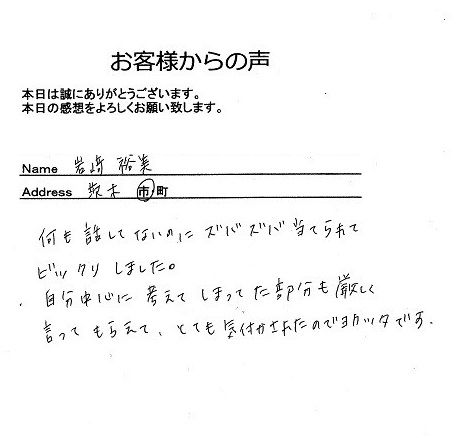 お客様からの声
本日は誠にありがとうございます。
本日の感想をよろしくお願い致します。
Name 岩崎 裕美
Address 栃木 市・町
何も話してないのにズバズバ当てられて
ビックリしました。
自分中心に考えてしまってた部分も厳しく
言ってもらえて、とても気付かされたのでヨカッタです.